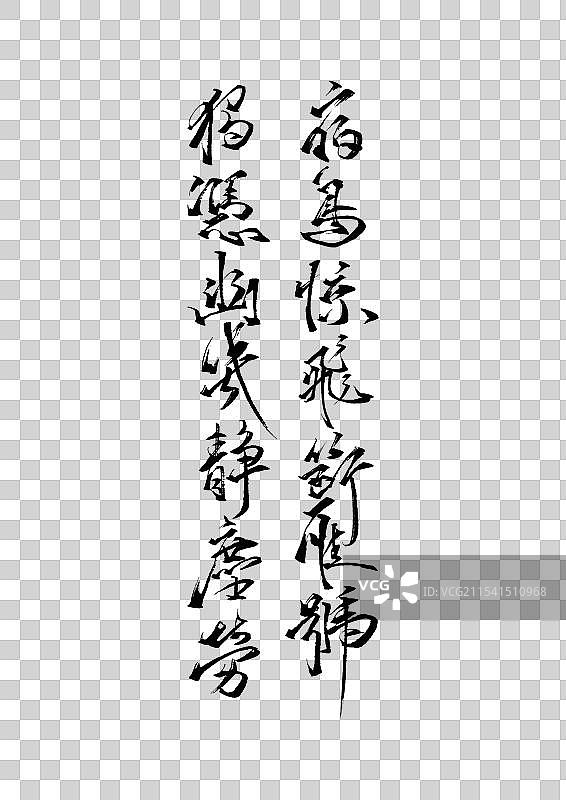 宿鳥惊飛斷雁號
獨憑幽幾静塵勞
VCG ID: VCG211541510968